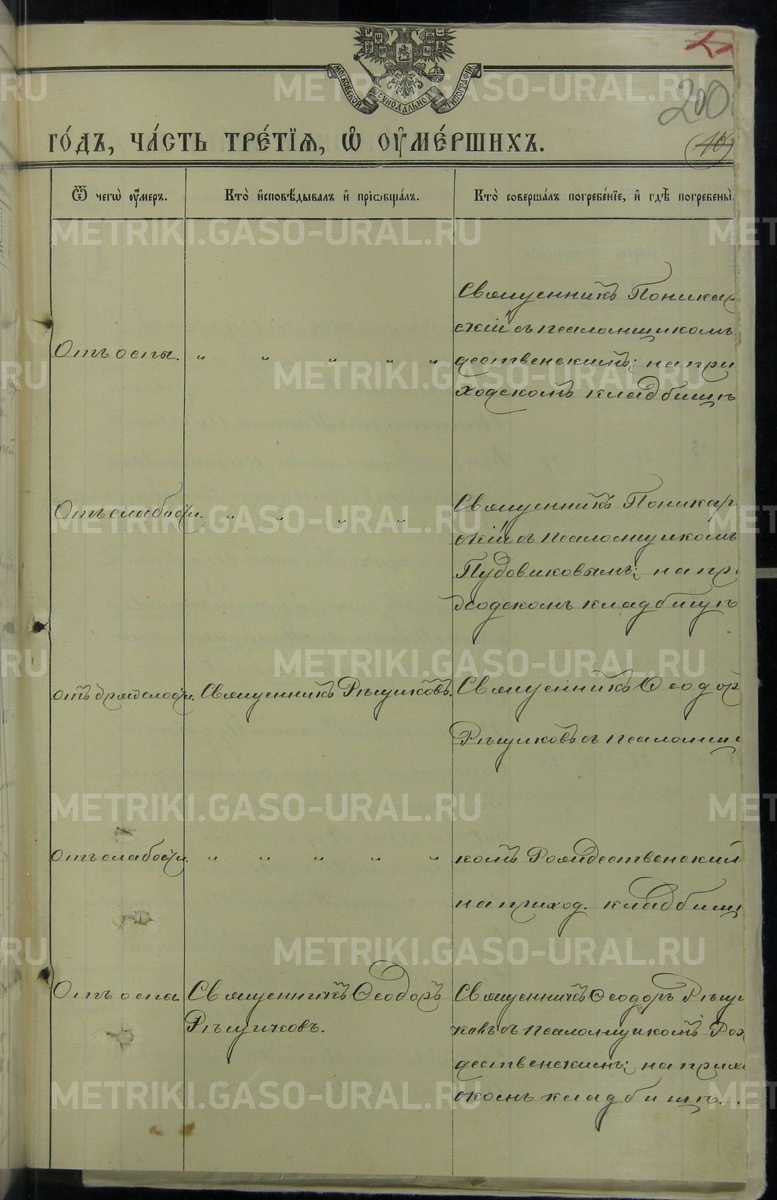 МОСКОВСКОЙ СѴНОДАЛЬНОЙ ТИПОГРАФІИ
200
16
го́дъ, ча́сть тре́тїѧ, ѡ҆ ᲂу҆ме́ршихъ.
Ѿ чегѡ̀ ᲂу҆́меръ.
Кто̀ и҆сповѣ́дывалъ и҆ прїѡбща́лъ.
Кто̀ соверша́лъ погребе́нїе, и҆ гдѣ̀ погребены̀.
Отъ оспы. „ „ „ „ „
Священникъ Поникар
скій съ псаломщикомъ
дественскимъ; на при
ходскомъ кладбищѣ
Отъ слабости. „ „ „ „
Священникъ Поникар
скій съ псаломщикомъ
Пудовиковымъ; на пр
ходскомъ кладбищѣ
отъ дряхлости. Священникъ Рѣшиковъ.
Священникъ Ѳеодор
Рѣшиковъ съ псаломщи
Отъ слабости. „ „ „ „ „
комъ Рождественский
на приход. кладбищ
Отъ оспы
Священникъ Ѳеодоръ
Рѣшиковъ.
Священникъ Ѳеодоръ Рѣши
ковъ съ псаломщикомъ Рож
дественскимъ; на прихо
скомъ кладбищѣ.
METRIKI.GASO-URAL.RU